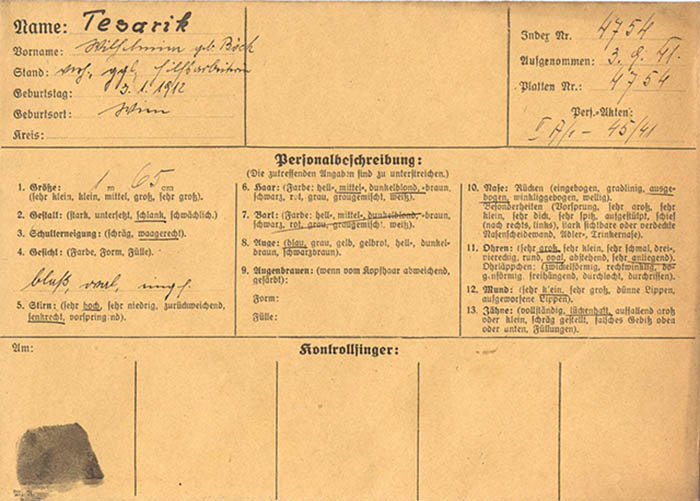 Name: Tesarik
Vorname: Wilhelmine geb. Böck
Stand: verh. ggl. Hilfsarbeiterin
Geburtstag: 3. 1. 1912
Geburtsort: Wien
Kreis:
Index Nr. 4754
Aufgenommen: 3. 9. 41.
Platten Nr.: 4754
Pers.-Akten:
45/41
Personalbeschreibung:
(Die zutreffenden Angaben sind zu unterstreichen.)
1. Größe: 1 m 65 cm
(sehr klein, klein, mittel, groß, sehr groß).
2. Gestalt: (stark, untersetzt, schlank, schwächlich).
3. Schulterneigung: (schräg, waagerecht).
4. Gesicht: (Farbe, Form, Fülle).
blaß, oval,
5. Stirn: (sehr hoch, sehr niedrig, zurückweichend,
senkrecht, vorspringend).
6. Haar: (Farbe: hell-, mittel-, dunkelblond, -braun,
schwarz, rot, grau, graugemischt, weiß).
7. Bart: (Farbe: hell-, mittel-, dunkelblond, -braun,
schwarz, rot, grau, graugemischt, weiß).
8. Auge: (blau, grau, gelb, gelbrot, hell-, dunkel-
braun, schwarzbraun).
9. Augenbrauen: (wenn vom Kopfhaar abweichend,
gefärbt):
Form:
Fülle:
10. Nase: Rücken (eingebogen, gradlinig, ausge-
bogen, winkliggebogen, wellig).
Besonderheiten (Vorsprung, sehr groß, sehr
klein, sehr dick, sehr spitz, aufgestülpt, schief
(nach rechts, links), stark sichtbare oder verdeckte
Nasenscheidewand, Adler-, Trinkernase).
11. Ohren: (sehr groß, sehr klein, sehr schmal, drei-,
viereckig, rund, oval, abstehend, sehr anliegend).
Ohrläppchen: (zwickelförmig, rechtwinklig, bo-
genförmig, freihängend, durchlocht, durchrissen).
12. Mund: (sehr klein, sehr groß, dünne Lippen,
aufgeworfene Lippen).
13. Zähne: (vollständig, lückenhaft, auffallend groß
oder klein, schräg gestellt, falsches Gebiß oben
oder unten, Füllungen).
Am:
Kontrollfinger: